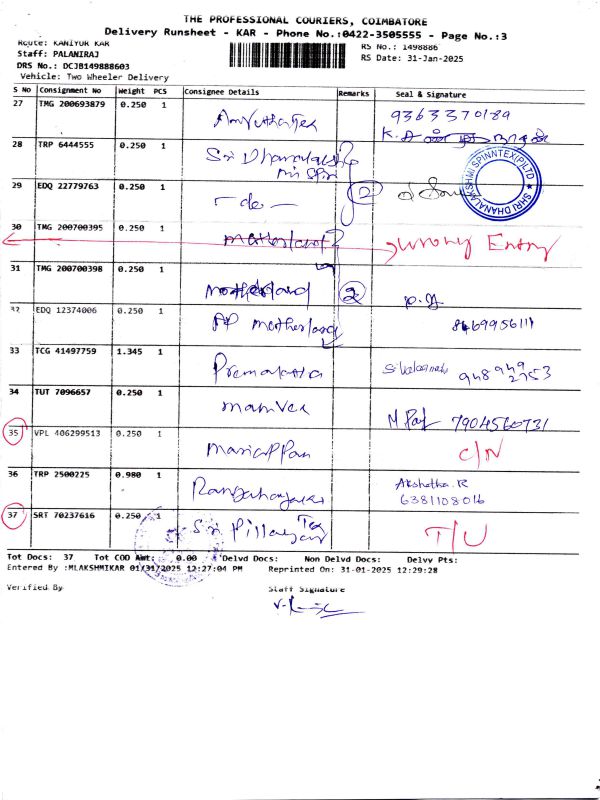 THE PROFESSIONAL COURIERS, COIMBATORE
Delivery Runsheet - KAR - Phone No.:0422-3505555 - Page No.:3
Route: KANIYUR KAR
RS No.: 1498886
Staff: PALANIRAJ
RS Date: 31-Jan-2025
DRS No.: DCJB149888603
Vehicle: Two Wheeler Delivery
S No Consignment No Weight PCS Consignee Details Remarks Seal & Signature
27 TMG 200693879 0.250 1 9363370189
28 TRP 6444555 0.250 1 Sri Dhanalakshmi
SHRI DHANALAKSHMI SPINNTEX (P) LTD
29 EDQ 22779763 0.250 1 - do - 2
30 TMG 200700395 0.250 1 motherland Wrong Entry
31 TMG 200700398 0.250 1 motherland 2
32 EDQ 12374006 0.250 1 AP motherland
33 TCG 41497759 1.345 1 Premalatha 948949 2753
34 TUT 7096657 0.250 1 7904560731
35 VPL 406299513 0.250 1 Mariappan C/N
36 TRP 2500225 0.980 1 Akshatha.R
6381108016
37 SRT 70237616 0.250 1 Sri Pillayar Tex T/U
Tot Docs: 37 Tot COD Amt: 0.00 Delvd Docs: Non Delvd Docs: Delvy Pts:
Entered By :MLAKSHMIKAR 01/31/2025 12:27:04 PM Reprinted On: 31-01-2025 12:29:28
Verified By Staff Signature